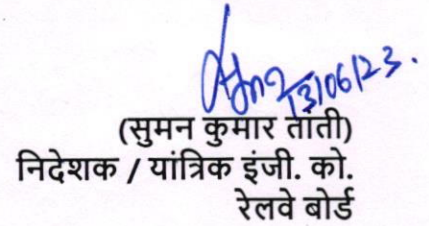 13/06/23.
(सुमन कुमार ताँती)
निदेशक / यांत्रिक इंजी. को.
रेलवे बोर्ड